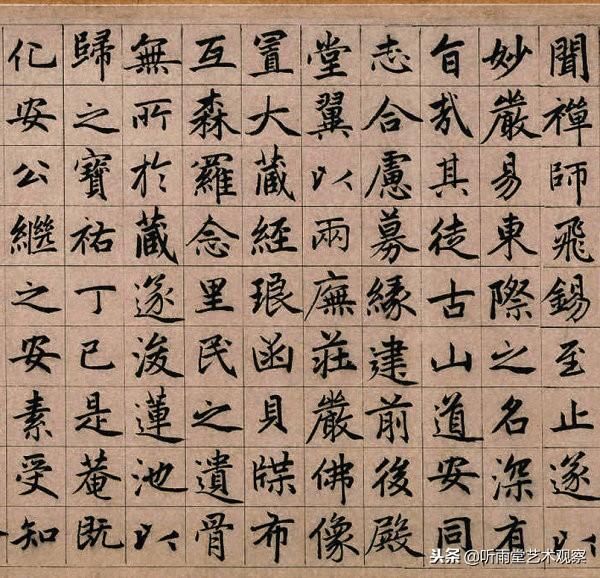 聞禪師飛錫至止遂以
妙嚴易東際之名深有
旨哉其徒古山道安同
志合慮募緣建前後殿
堂翼以兩廡莊嚴佛像
置大藏經琅函貝牒布
互森羅念里民之遺骨
無所於藏遂浚蓮池以
歸之寶祐丁巳是菴既
化安公繼之安素受知
头条 @听雨堂艺术观察